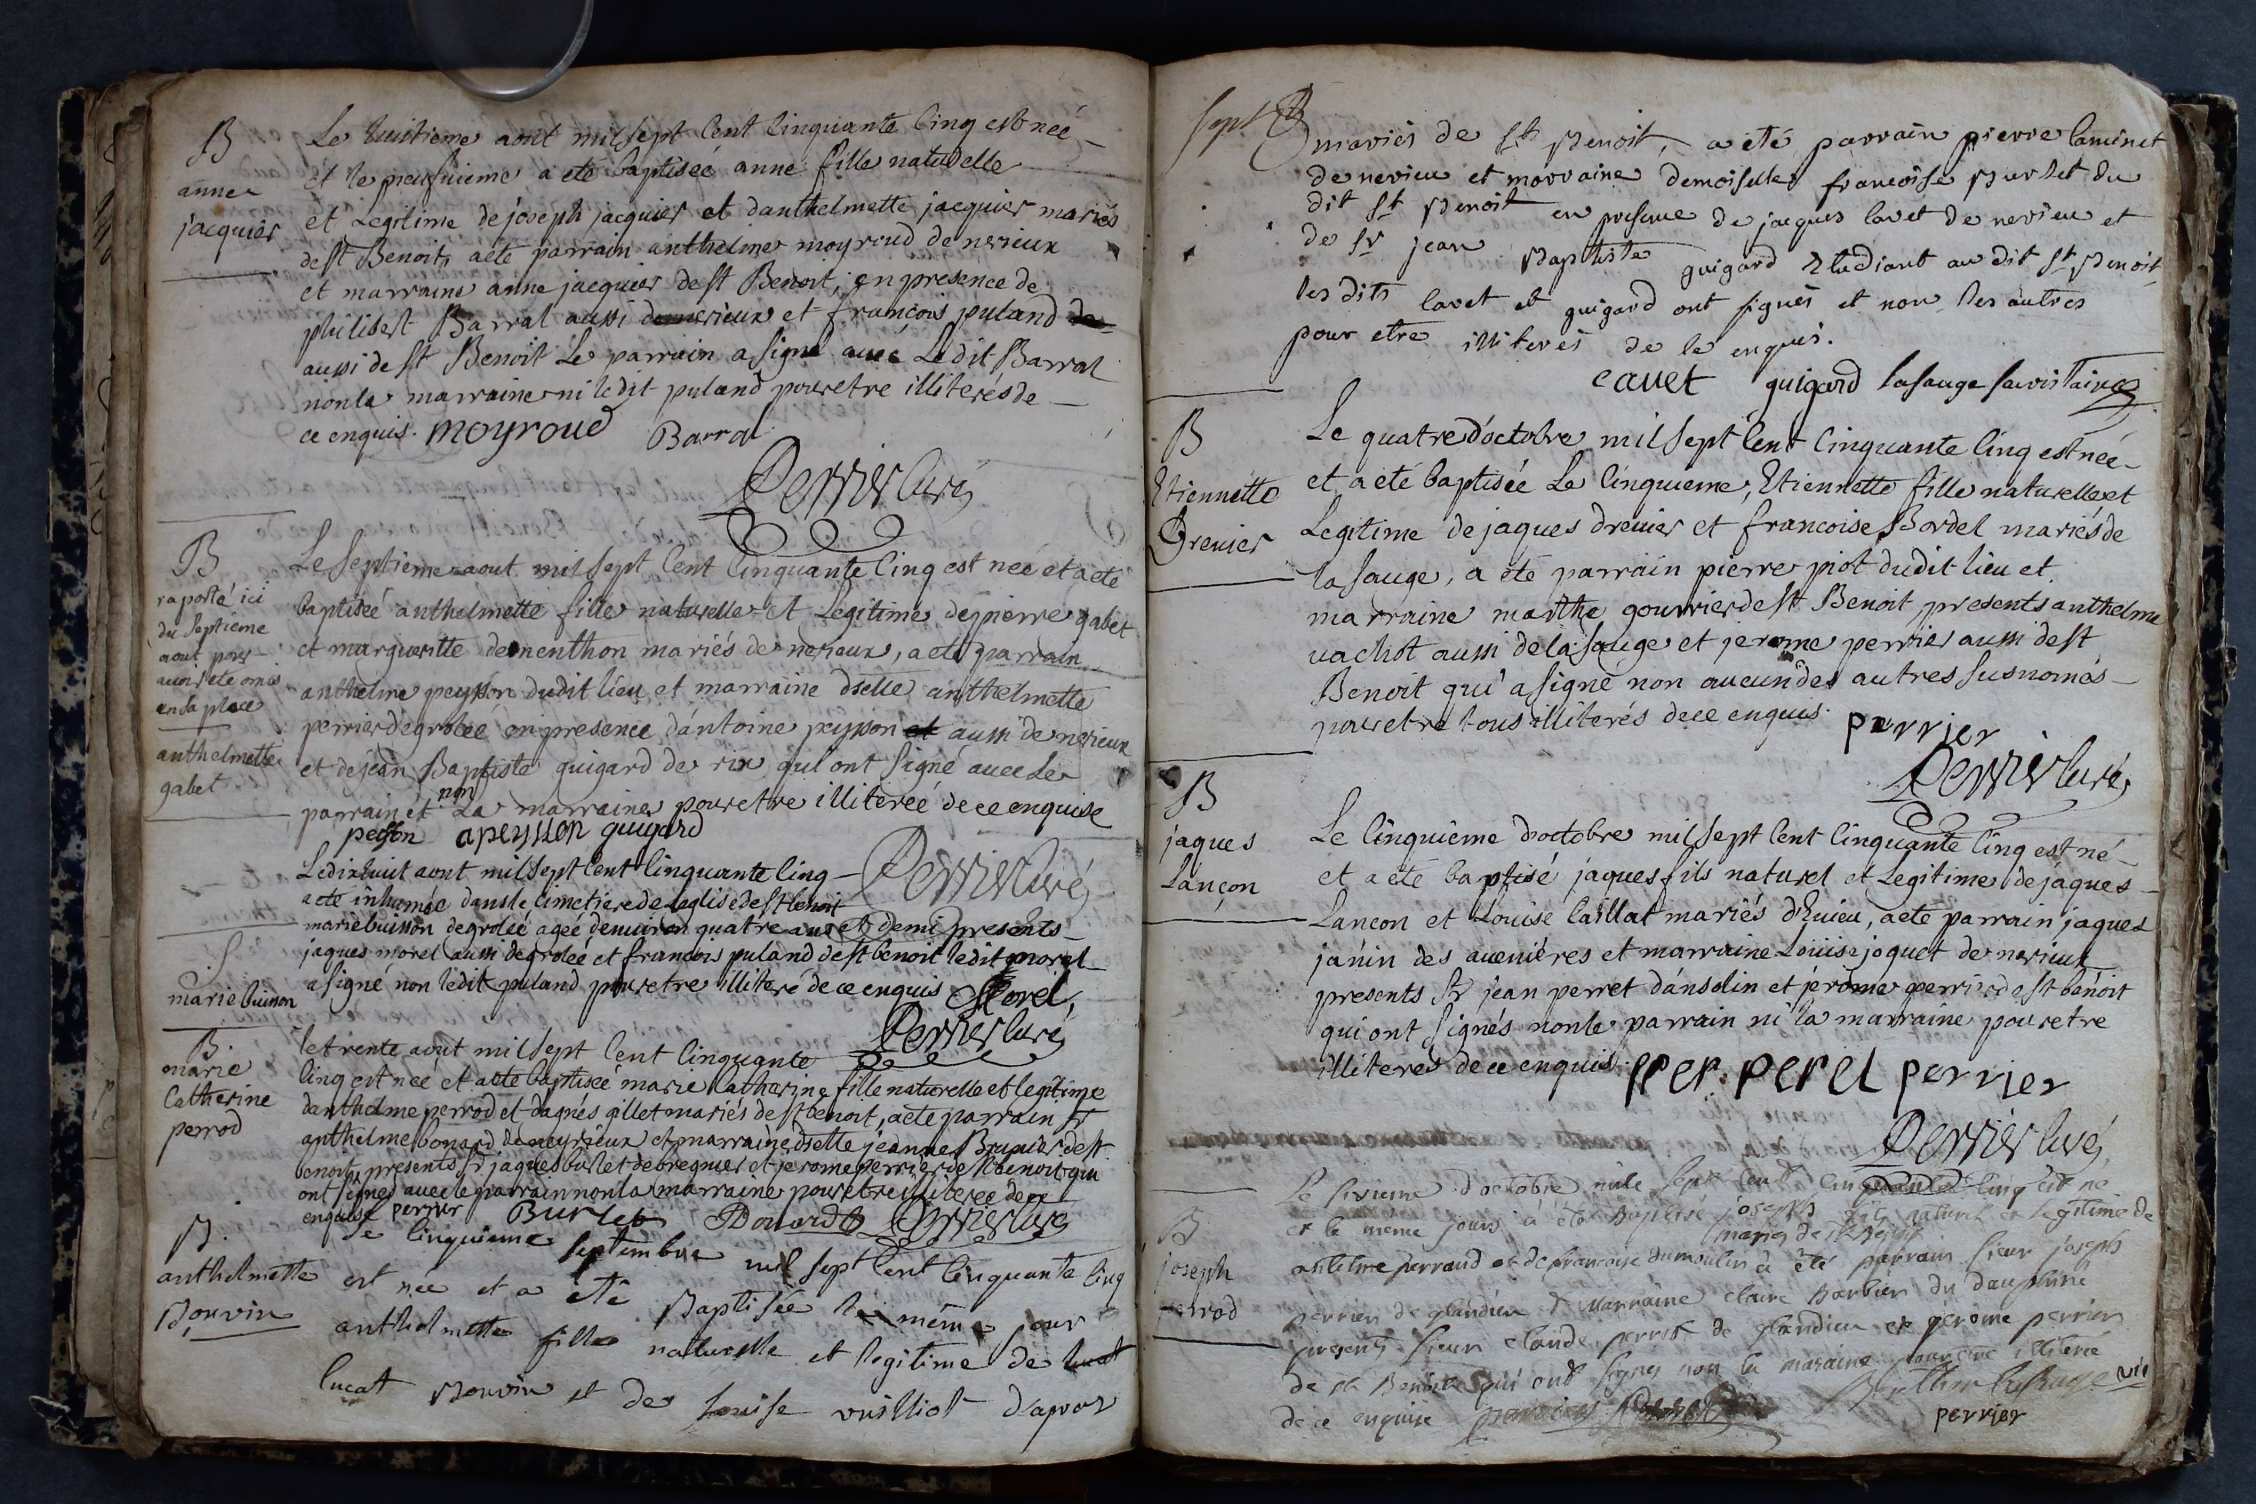 B
anne
jacquier
Le huitieme aout mil sept Cent Cinquante Cinq est neé
et le neufvieme a eté baptiseé anne fille naturelle
et Legitime de joseph jacquier et danthelmette jacquier mariés
de st Benoit, a eté parrain anthelme moyroud de nerieux
et marraine anne jacquier de st Benoit, en presence de
philibert Barral aussi de nerieux et françois puland de
aussi de st Benoit Le parrain a signé avec Ledit Barral
non la marraine ni ledit puland pour etre illiterés de
ce enquis. moyroud Barral
Perrier Curé
B
raporté ici
du septieme
aout pour
avoir eté omis
en sa place
anthelmette
gabet
Le septieme aout mil sept Cent Cinquante Cinq est neé et a eté
baptiseé anthelmette fille naturelle et Legitime de pierre gabet
et margueritte de menthon mariés de nerieux, a eté parrain
anthelme peysson dudit lieu et marraine dselle anthelmette
perrier de groleé en presence d'antoine peysson et aussi de nerieux
et de jean Baptiste guigard de rix qui ont signé avec Le
parrain et non La marraine pour etre illitereé de ce enquise
peyson apeysson guigard
Perrier Curé
S
marie buisson
Le dix huit aout mil sept Cent Cinquante Cinq
a eté inhumée dans le Cimetiere de leglise de st benoit
marie buisson de groleé ageé denviron quatre ans et demi presents
jaques morel aussi de groleé et francois puland de st benoit ledit morel
a signé non ledit puland pour etre illiteré de ce enquis Morel,
Perrier Curé
B.
marie
Catherine
perrod
le trente aout mil sept Cent Cinquante
Cinq est neé et a eté baptiseé marie Catherine fille naturelle et legitime
danthelme perrod et dagnés gillet mariés de st benoit, a eté parrain sr
anthelme bonard de meyrieux et marraine dselle jeanne Brunier de st
benoit, presents sr jaques burlet de bregnier et jerome perrier de st benoit qui
ont signés avec le parrain non la marraine pour etre illitereé de ce
enquise perrier Burlet Bonard Perrier Curé
B.
anthelmette
Bouvin
Le Cinquieme Septembre mil sept Cent Cinquante Cinq
est née et a été Baptisée le même jour
anthelmette fille naturelle et legitime de lucat
lucat Bouvin et de Louise vuilliot d'apvos
Sept
mariés de St Benoit, a été parrain pierre Caminet
de nerieu et marraine demoiselle francoise Burlet du
dit St Benoit en presence de jacques Cavet de nerieu et
de Sr jean Baptiste guigard Etudiant au dit St Benoit
les dits Cavet et guigard ont signés et non les autres
pour etre illiterés de le enquis.
Cavet guigard
B
Etiennette
Drevier
Le quatre d'octobre mil sept Cent Cinquante Cinq est née
et a eté baptisée Le Cinquieme, Etiennette fille naturelle et
Legitime de jaques drevier et francoise Bordel mariés de
la sauge, a eté parrain pierre piot dudit lieu et
marraine marthe gourrier de st Benoit presents anthelme
vachot aussi de la sauge et jerome perrier aussi de st
Benoit qui a signé non aucun des autres susnomés
pour etre tous illiterés de ce enquis. perrier
Perrier Curé
B
jaques
Lançon
Le Cinquieme d'octobre mil sept Cent Cinquante Cinq est né
et a eté baptisé jaques fils naturel et Legitime de jaques
Lancon et Louise Caillat mariés d'Evieu, a eté parrain jaques
janin des avenières et marraine Louise joquet de nerieux
presents sr jean perret d'ansolin et jérôme perrier de st benoit
qui ont signés non le parrain ni la marraine pour etre
illiterés de ce enquis. perrier
Perrier Curé
B
joseph
perrod
Le Sixieme d'octobre mile Sept Cent Cinquante Cinq est ne
et le même jours à été Baptisé joseph fils naturel et legitime de
mariés de st Benoit
antelme perraud et de francoise dumoulin à été parrain Sieur joseph
perrier de glandieu et Marraine claire Barbier du dauphiné
presents Sieur claude perret de glandieu et gerome perrier
de st Benoit qui ont Signés non la maraine pour etre illiterée
de ce enquise perrier
perrier